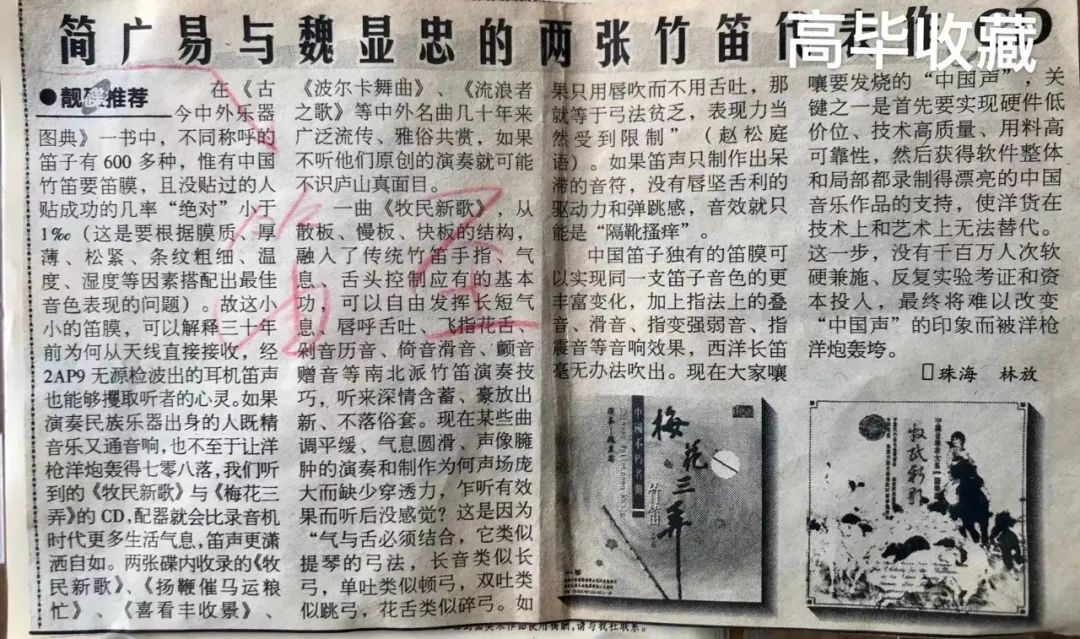 简广易与魏显忠的两张竹笛代表作CD
高毕收藏
●靓碟推荐
在《古
今中外乐器
图典》一书中，不同称呼的
笛子有600多种，惟有中国
竹笛要笛膜，且没贴过的人
贴成功的几率“绝对”小于
1‰（这是要根据膜质、厚
薄、松紧、条纹粗细、温
度、湿度等因素搭配出最佳
音色表现的问题）。故这小
小的笛膜，可以解释三十年
前为何从天线直接接收，经
2AP9无源检波出的耳机笛声
也能够攫取听者的心灵。如果
演奏民族乐器出身的人既精
音乐又通音响，也不至于让洋
枪洋炮轰得七零八落，我们听
到的《牧民新歌》与《梅花三
弄》的CD，配器就会比录音机
时代更多生活气息，笛声更潇
洒自如。两张碟内收录的《牧
民新歌》、《扬鞭催马运粮
忙》、《喜看丰收景》、
《波尔卡舞曲》、《流浪者
之歌》等中外名曲几十年来
广泛流传、雅俗共赏，如果
不听他们原创的演奏就可能
不识庐山真面目。
一曲《牧民新歌》，从
散板、慢板、快板的结构，
融入了传统竹笛手指、气
息、舌头控制应有的基本
功，可以自由发挥长短气
息、唇呼舌吐、飞指花舌、
剁音历音、倚音滑音、颤音
赠音等南北派竹笛演奏技
巧，听来深情含蓄、豪放出
新、不落俗套。现在某些曲
调平缓、气息圆滑、声像臃
肿的演奏和制作为何声场庞
大而缺少穿透力，乍听有效
果而听后没感觉？这是因为
“气与舌必须结合，它类似
提琴的弓法，长音类似长
弓，单吐类似顿弓，双吐类
似跳弓，花舌类似碎弓。如
果只用唇吹而不用舌吐，那
就等于弓法贫乏，表现力当
然受到限制”（赵松庭
语）。如果笛声只制作出呆
滞的音符，没有唇坚舌利的
驱动力和弹跳感，音效就只
能是“隔靴搔痒”。
中国笛子独有的笛膜可
以实现同一支笛子音色的更
丰富变化，加上指法上的叠
音、滑音、指变强弱音、指
震音等音响效果，西洋长笛
毫无办法吹出。现在大家嚷
嚷要发烧的“中国声”，关
键之一是首先要实现硬件低
价位、技术高质量、用料高
可靠性，然后获得软件整体
和局部都录制得漂亮的中国
音乐作品的支持，使洋货在
技术上和艺术上无法替代。
这一步，没有千百万人次软
硬兼施、反复实验考证和资
本投入，最终将难以改变
“中国声”的印象而被洋枪
洋炮轰垮。
□珠海 林放
中国不朽名曲
梅花三弄
竹笛
牧民新歌